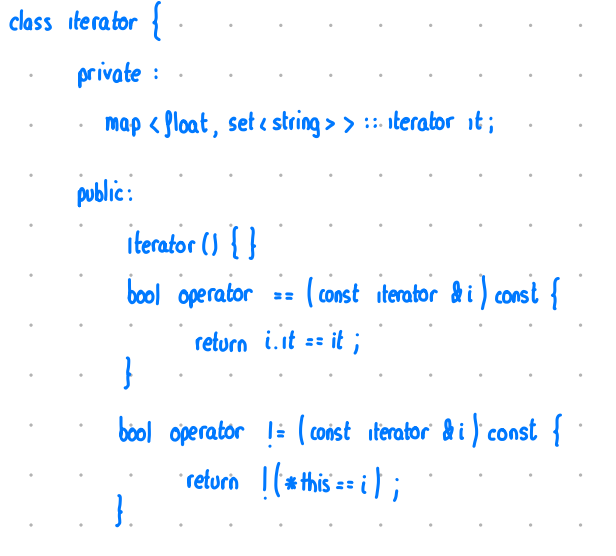 class iterator {
private :
map <float, set<string> > :: iterator it ;
public :
iterator () { }
bool operator == (const iterator & i ) const {
return i.it == it ;
}
bool operator != (const iterator & i ) const {
return !(*this == i ) ;
}